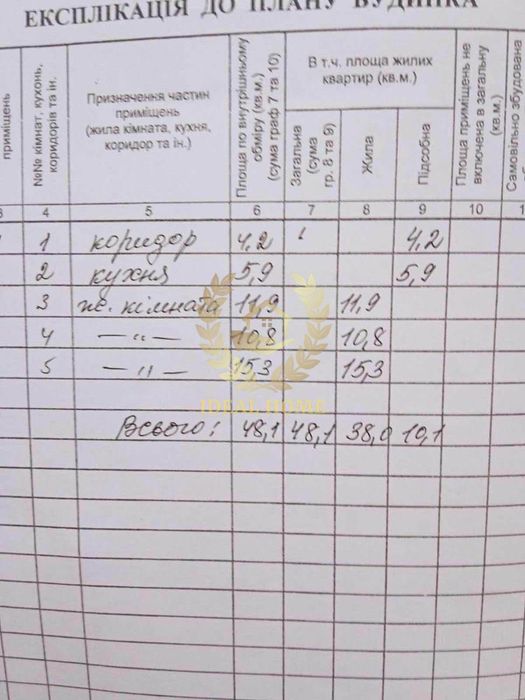 ЕКСПЛІКАЦІЯ ДО ПЛАНУ БУДИНКА
приміщень
№№ кімнат, кухонь, коридорів та ін.
Призначення частин приміщень (жила кімната, кухня, коридор та ін.)
Площа по внутрішньому обміру (кв.м.) (сума граф 7 та 10)
В т.ч. площа жилих квартир (кв.м.)
Загальна (сума гр. 8 та 9)
Жила
Підсобна
Площа приміщень не включена в загальну (кв.м.)
Самовільно збудована
3 4 5 6 7 8 9 10 1
1 коридор 4,2 4,2
2 кухня 5,9 5,9
3 ж. кімната 11,9 11,9
4 — " — 10,8 10,8
5 — " — 15,3 15,3
IDEAL HOME
Всього: 48,1 48,1 38,0 10,1